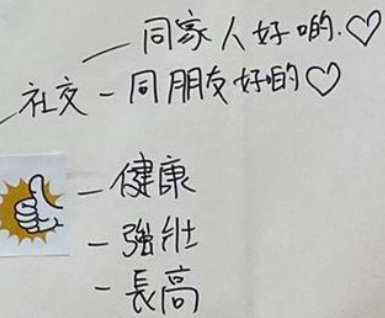 同家人好啲.♡
社交 - 同朋友好的♡
- 健康
- 強壯
- 長高